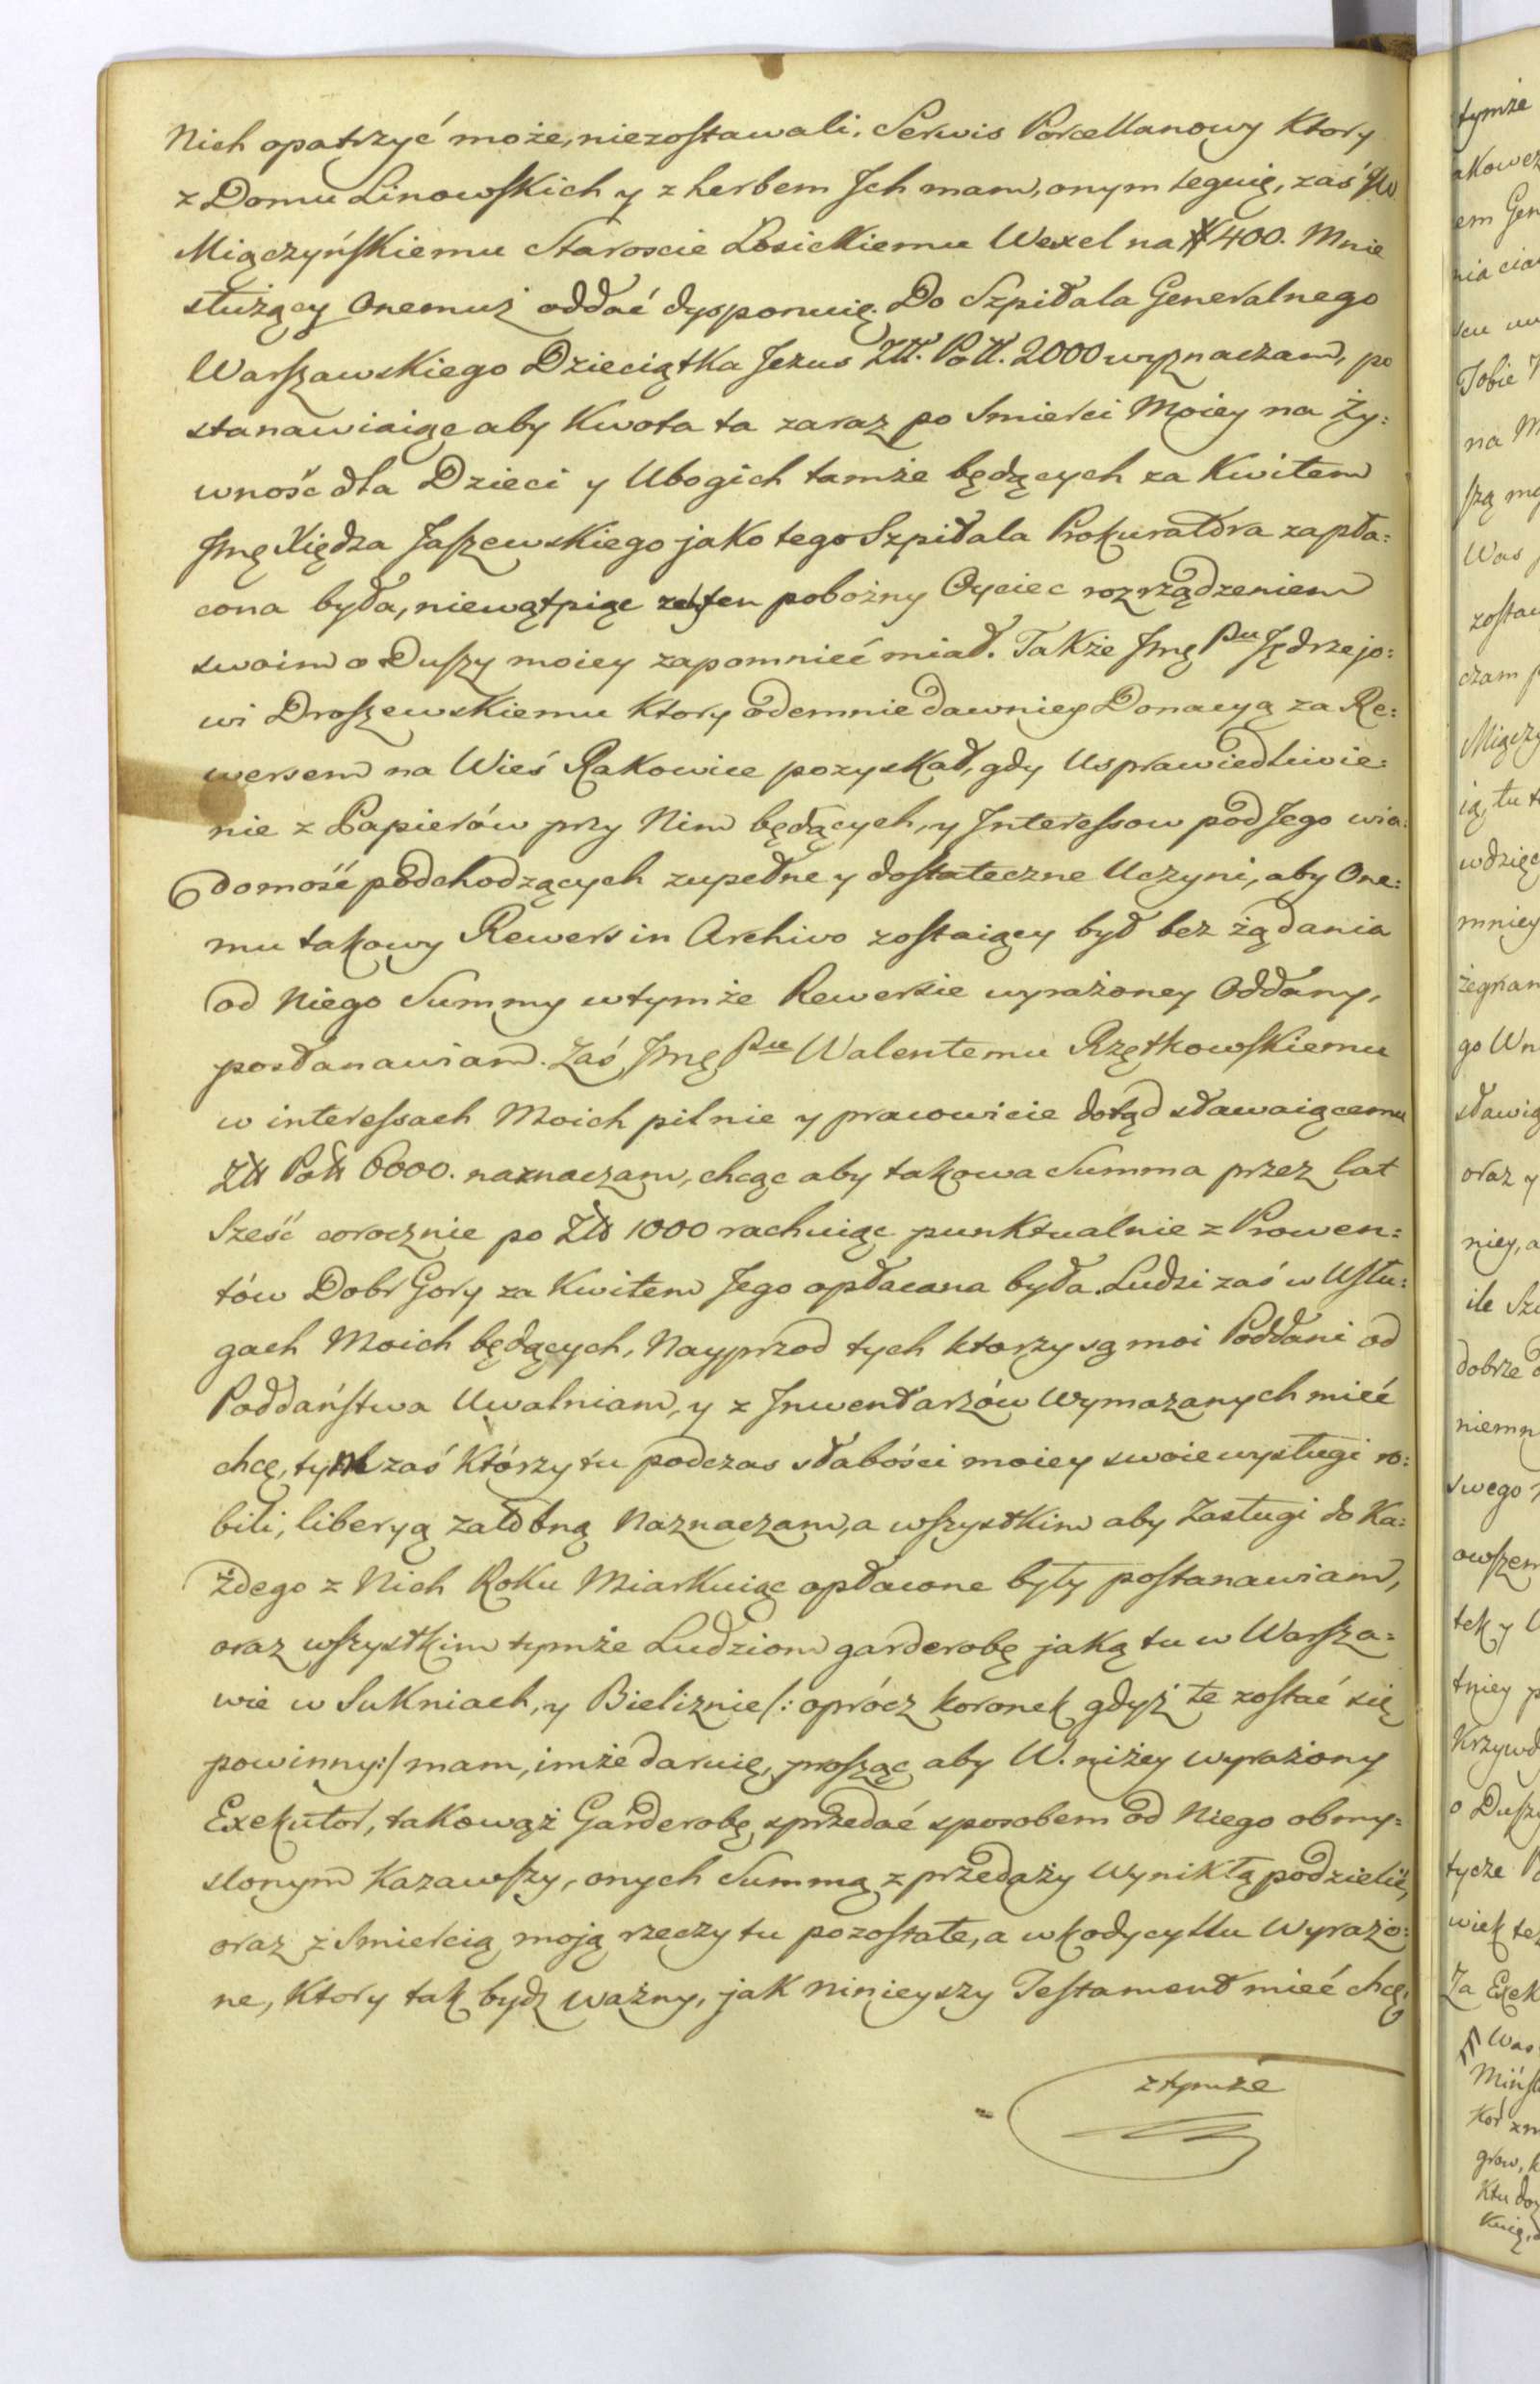 Nich opatrzyć może, niezostawali. Serwis Porcellanowy Ktory
z Domu Linowskich y z herbem Jch mam, onym leguię, zaś JW
Miączyńskiemu Staroscie Łosickiemu Wexel na # 400. Mnie
służący Onemuż oddać dysponuię. Do Szpitala Generalnego
Warszawskiego Dzieciątka Jezus Złł. Poll. 2000 wyznaczam, po
stanawiaiąc aby Kwota ta zaraz po Smierci Moiey na ży:
wność dla Dzieci y Ubogich tamże będących za Kwitem
Jmę Xiędza Jaszewskiego jako tego Szpitala Prokuratora zapła:
cona była, niewątpiąc ten pobożny Oyciec rozrządzeniem
swoim o Duszy moiey zapomnieć miał. Także Jmę Pnu Jędrzejo:
wi Droszewskiemu Ktory odemnie dawniey Donacyą za Re:
wersem na Wieś Rakowice pozyskał, gdy Usprawiedliwie:
nie z Papierów przy Nim będących, y Jnteressow pod Jego wia:
domość podchodzących zupełne y dostateczne Uczyni, aby One:
mu takowy Rewers in Archivo zostaiący był bez żądania
od Niego Summy w tymże Rewersie wyrażoney Oddany,
postanawiam. Zaś Jmę Pnu Walentemu Rzętkowskiemu
w interessach Moich pilnie y pracowicie dotąd stawaiącemu
Złł Poll 6000. naznaczam, chcąc aby takowa Summa przez lat
Sześć corocznie po Złł 1000 rachuiąc punktualnie z Prowen:
tów Dobr Gory za Kwitem Jego opłacana była. Ludzi zaś w Usłu:
gach Moich będących, Nayprzod tych ktorzy są moi Poddani od
Poddaństwa Uwalniam, y z Jnwentarzów Wymazanych mieć
chcę, tym zaś Którzy tu podczas słabości moiey swoie wysługi ro:
bili, liberyą żałobną Naznaczam, a wszystkim aby Zasługi do Ka:
żdego z Nich Roku Miarkuiąc opłacone były postanawiam,
oraz wszystkim tymże Ludziom garderobę jaką tu w Warsza=
wie w Sukniach, y Bieliznie /: oprócz koronek gdyż te zostać się
powinny :/ mam, imże daruię, prosząc aby W. niżey wyrażony
Exekutor, takowąż Garderobę sprzedać sposobem od Niego obmy=
slonym Kazawszy, onych Summą z przedaży Wynikłą podzielił,
oraz z Smiercią moją rzeczy tu pozostałe, a w kodycyllu Wyrażo:
ne, Ktory tak bydź ważny, jak ninieyszy Testament mieć chcę,
z tymże